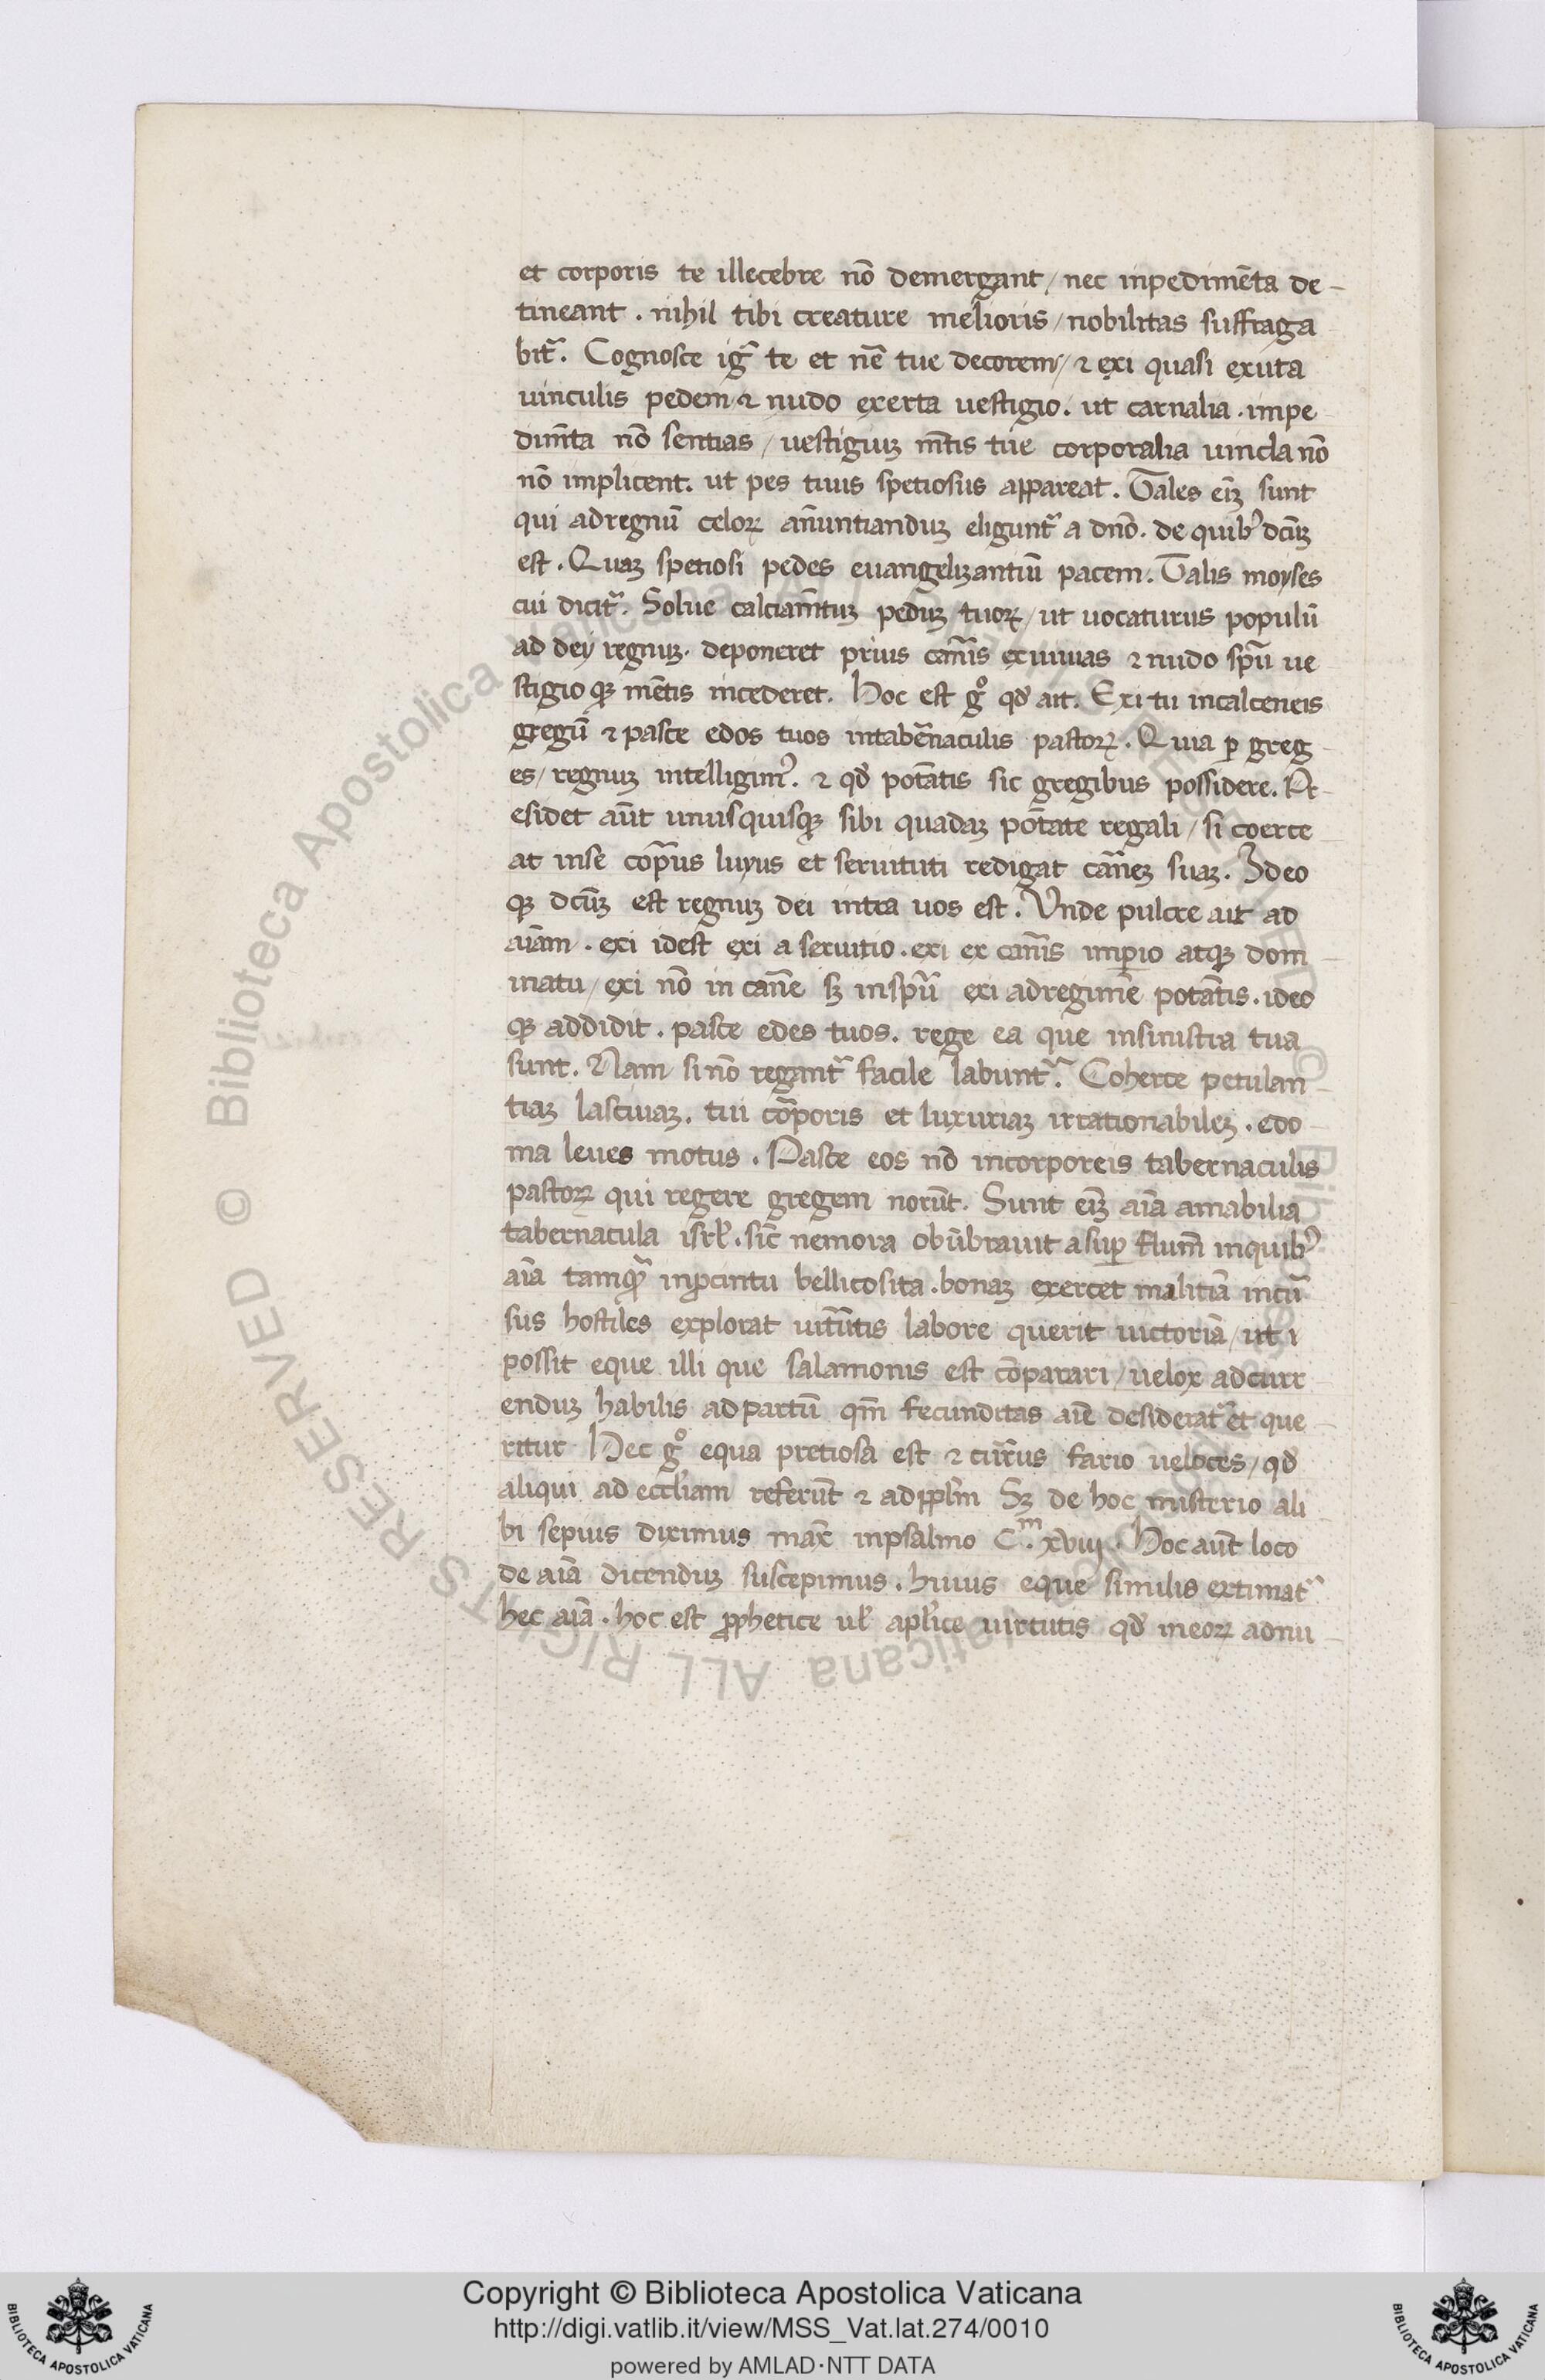 et corporis te illecebre nō demergant / nec inpedimēta de-
tineant . nihil tibi creature melioris / nobilitas suffraga
bit᷑. Cognosce ig᷑ te et nē tue decorem / ⁊ exi quasi exuta
uinculis pedem ⁊ nudo exerta uestigio. ut carnalia . impe
dim̄ta nō sentias / uestigiuꝫ m̄tis tue corporalia uincla nō
nō implicent. ut pes tuus spetiosus appareat. Tales eīꝫ sunt
qui ad regnū celoꝝ an̄untianduꝫ eligunt᷑ a dn̄o. de quibꝰ dcm̄ꝫ
est . Quaꝫ spetiosi pedes euangelizantiū pacem. Talis moyses
cui dicit᷑. Solue calciam̄tuꝫ peduꝫ tuoꝝ / ut uocaturus populū
ad dey regnuꝫ. deponeret prius carn̄is exuuias ⁊ nudo spū ue
stigio qꝫ mētis incederet. Hoc est gͦ qd̓ ait. Exi tu in calceneis
gregū ⁊ pasce edos tuos in tab̄ernaculis pastoꝝ. Quia ꝑ greg-
es / regnuꝫ intelligimꝰ. ⁊ qd̓ potātis sic gregibus possidere. Pr-
esidet aūt unusquisqꝫ sibi quadaꝫ potātate regali / si coerce
at in se cop̄us luxus et seruituti redigat carn̄eꝫ suaꝫ. Ideo
qꝫ dcm̄ꝫ est regnuꝫ dei intra uos est. Vnde pulcre ait ad
aīam . exi idest exi a seruitio . exi ex carn̄is imperio atqꝫ dom-
inatu / exi nō in carn̄e sꝫ in spū exi ad regimē potātis . ideo
qꝫ addidit . pasce edes tuos. rege ea que in sinistra tua
sunt. Nam si nō regant᷑ facile labunt᷑. Coherce petulan-
tiaꝫ lasciuaꝫ. tui cōporis et luxuriaꝫ irrationabileꝫ . edo-
ma leues motus . Pasce eos nō in corporeis tabernaculis
pastoꝝ qui regere gregem norūt. Sunt eīꝫ aīa amabilia
tabernacula isrl̓. sic̄ nemora obūbrauit a suꝑ flum̄ in quibꝰ
aīa tamqꝫ in ꝓcintu bellicosita . bonaꝫ exercet malitiā incū
sus hostiles explorat uirtūtis labore querit uictoriā / ut i
possit eque illi que salamonis est cōparari / uelox ad curr-
enduꝫ habilis ad partū qm̄ fecunditas aīe desiderat᷑ et que-
ritur Hec gͦ equa pretiosa est ⁊ curr̄us fario ueloces / qd̓
aliqui ad eccl̓iam referūt ⁊ ad ppl̓m Sꝫ de hoc misterio ali
bi sepius diximus max̄ in psalmo C.ᵐ xviij . Hoc aūt loco
de aīa dicenduꝫ suscepimus . huius eque similis extimat᷑
hec aīa . hoc est ꝓphetice ul̓ apl̓ice uirtutis qd̓ in eoꝝ adnu-
© Biblioteca Apostolica Vaticana ALL RIGHTS RESERVED
Copyright © Biblioteca Apostolica Vaticana
http://digi.vatlib.it/view/MSS_Vat.lat.274/0010
powered by AMLAD·NTT DATA
BIBLIOTECA APOSTOLICA VATICANA
BIBLIOTECA APOSTOLICA VATICANA